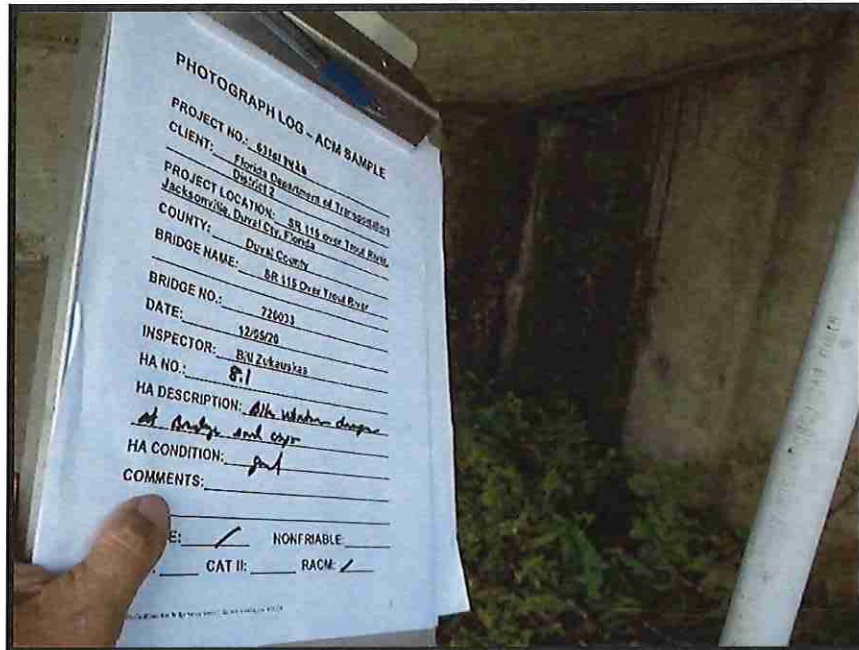 PHOTOGRAPH LOG – ACM SAMPLE
PROJECT NO.:
CLIENT: Florida Department of Transportation
District 2
PROJECT LOCATION: SR 115 over Trout River,
Jacksonville, Duval Cty, Florida
COUNTY: Duval County
BRIDGE NAME: SR 115 Over Trout River
BRIDGE NO.: 720033
DATE: 12/05/20
INSPECTOR: Bill Zukauskas
HA NO.: 8.1
HA DESCRIPTION: Blk
at Bridge end caps
HA CONDITION: good
COMMENTS:
E: / NONFRIABLE:
CAT II: RACM: /